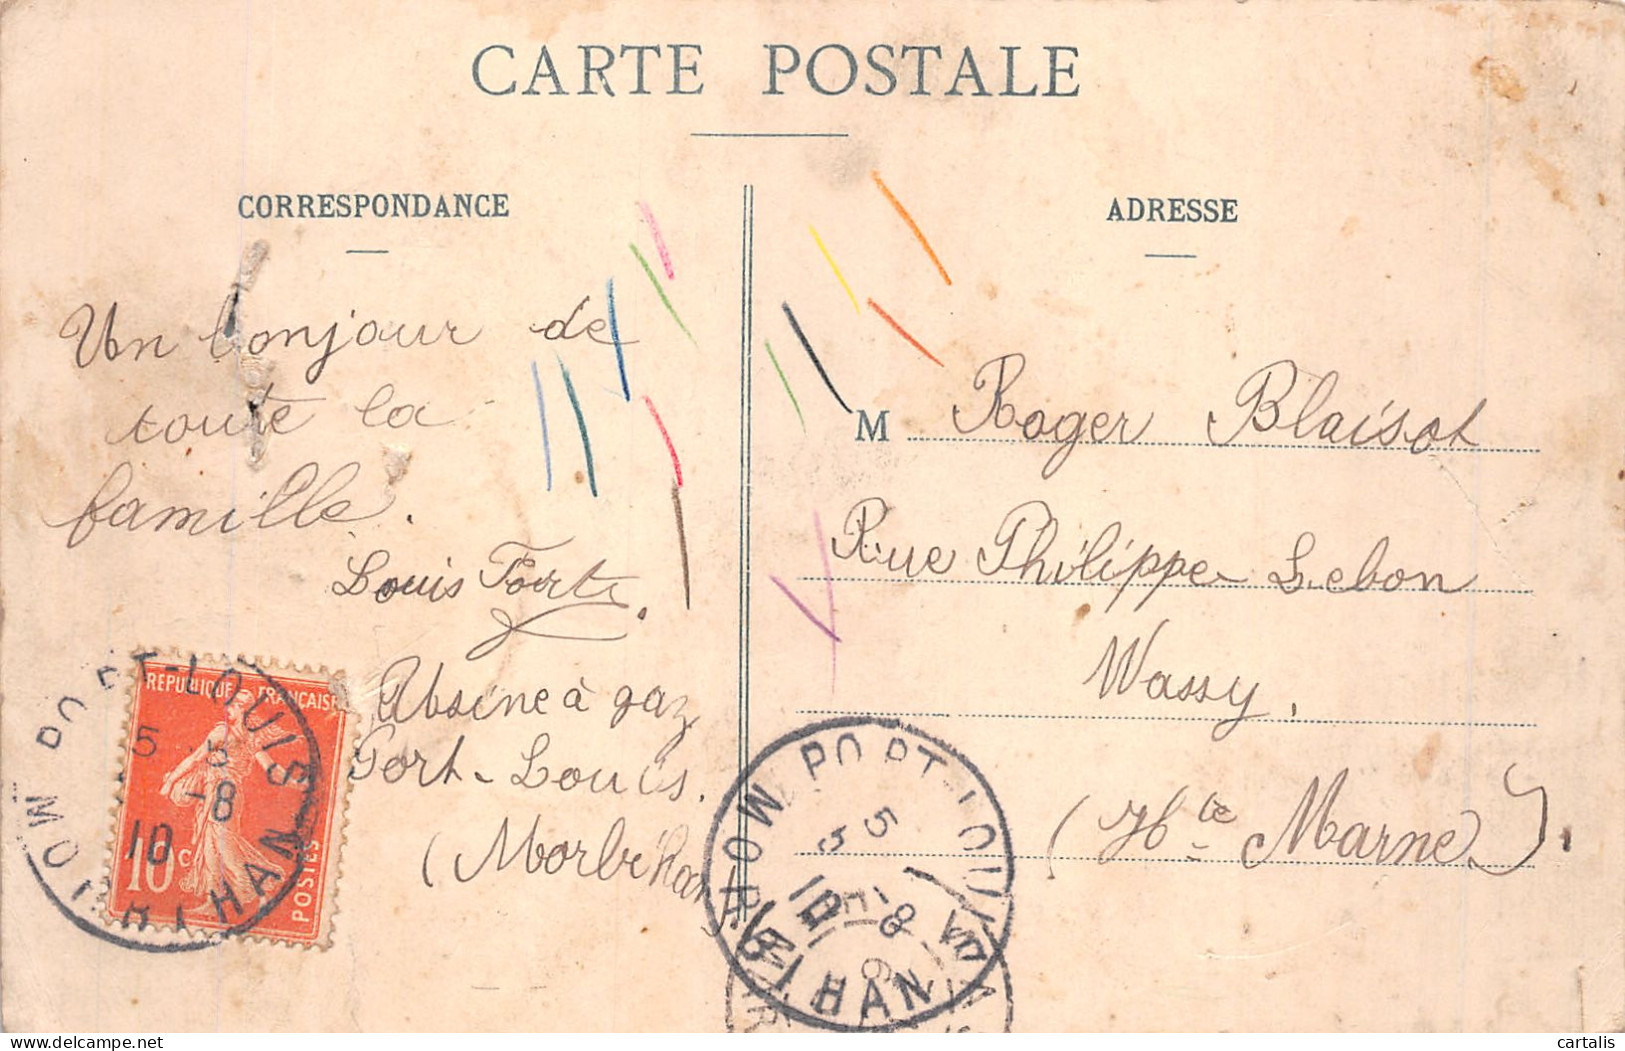 CARTE POSTALE
CORRESPONDANCE
Un bonjour de
toute la
famille.
Louis
à gaz
Port-Louis.
(Morbihan)
RÉPUBLIQUE FRANÇAISE
10c
POSTES
PORT-LOUIS
5
-8
10
MORBIHAN
ADRESSE
M Roger Blaisot
Rue Philippe Lebon
Wassy.
(Hte Marne).
PORT-LOUIS
5
-8
10
MORBIHAN
cartalis